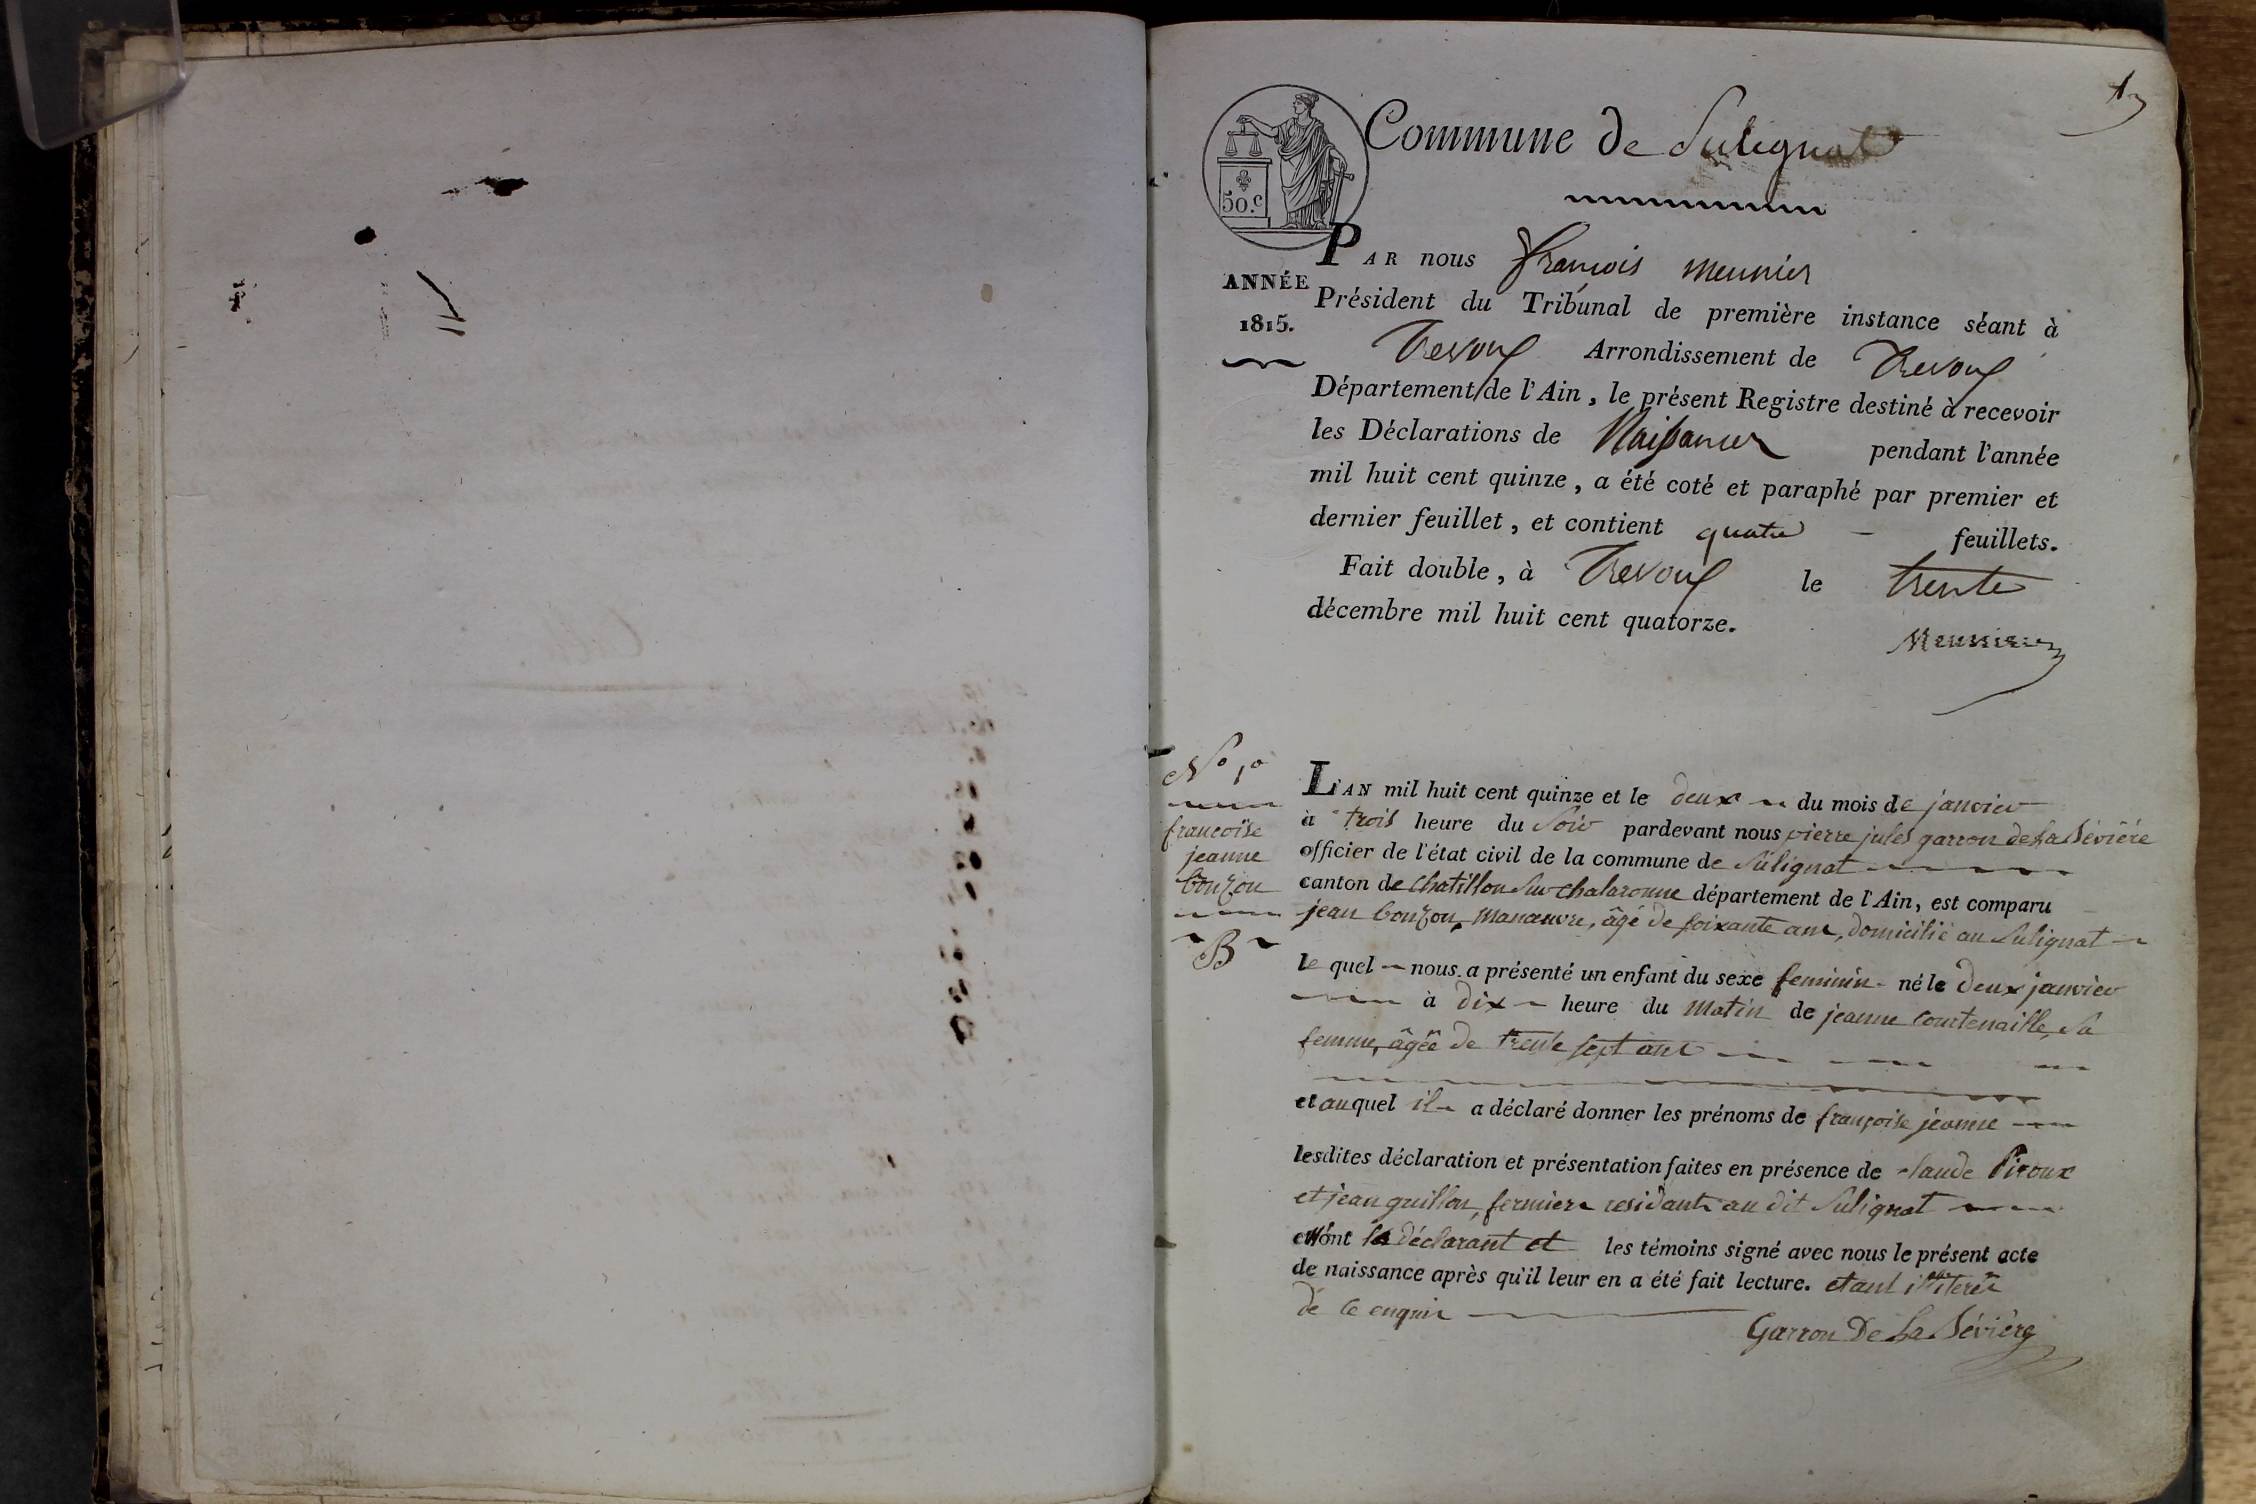 1
Commune de Sulignat
50.c
PAR nous François Meunier
ANNÉE
1815.
Président du Tribunal de première instance séant à
Trevoux Arrondissement de Trevoux
Département de l'Ain, le présent Registre destiné à recevoir
les Déclarations de Naissances pendant l'année
mil huit cent quinze, a été coté et paraphé par premier et
dernier feuillet, et contient quatre feuillets.
Fait double, à Trevoux le trente
décembre mil huit cent quatorze.
Meunier
N° 1°
françoise
jeanne
bouzon
B
L'AN mil huit cent quinze et le deux du mois de janvier
à trois heure du Soir pardevant nous pierre jules garron de La Sévière
officier de l'état civil de la commune de Sulignat
canton de chatillon Sur chalaronne département de l'Ain, est comparu
jean bouzon, manœuvre, âgé de soixante ans, domicilié au Sulignat
le quel nous a présenté un enfant du sexe feminin né le deux janvier
à dix heure du matin de jeanne courtenaille, Sa
femme, âgée de trente sept ans
et auquel il a déclaré donner les prénoms de françoise jeanne
lesdites déclaration et présentation faites en présence de claude Piroux
et jean guillon, fermiers residants au dit Sulignat
n'ont le déclarant et les témoins signé avec nous le présent acte
de naissance après qu'il leur en a été fait lecture. etant illiterés
de ce enquis
Garron De La Sévière